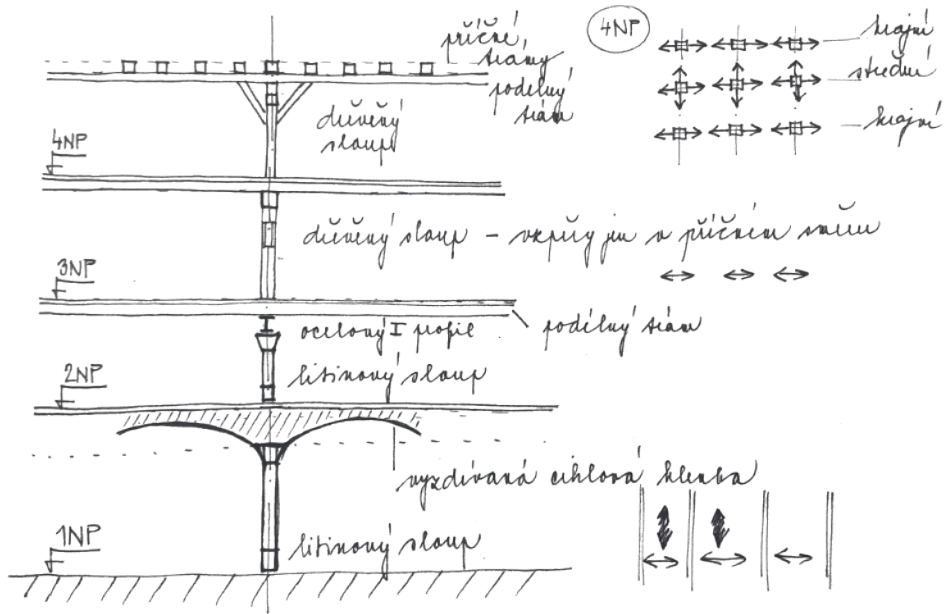 příčné
trámy
podélný
trám
4NP
krajní
střední
krajní
dřevěný
sloup
4NP
dřevěný sloup – vzpěry jen v příčném směru
3NP
ocelový I profil
podélný trám
litinový sloup
2NP
vyzdívaná cihlová klenba
1NP
litinový sloup